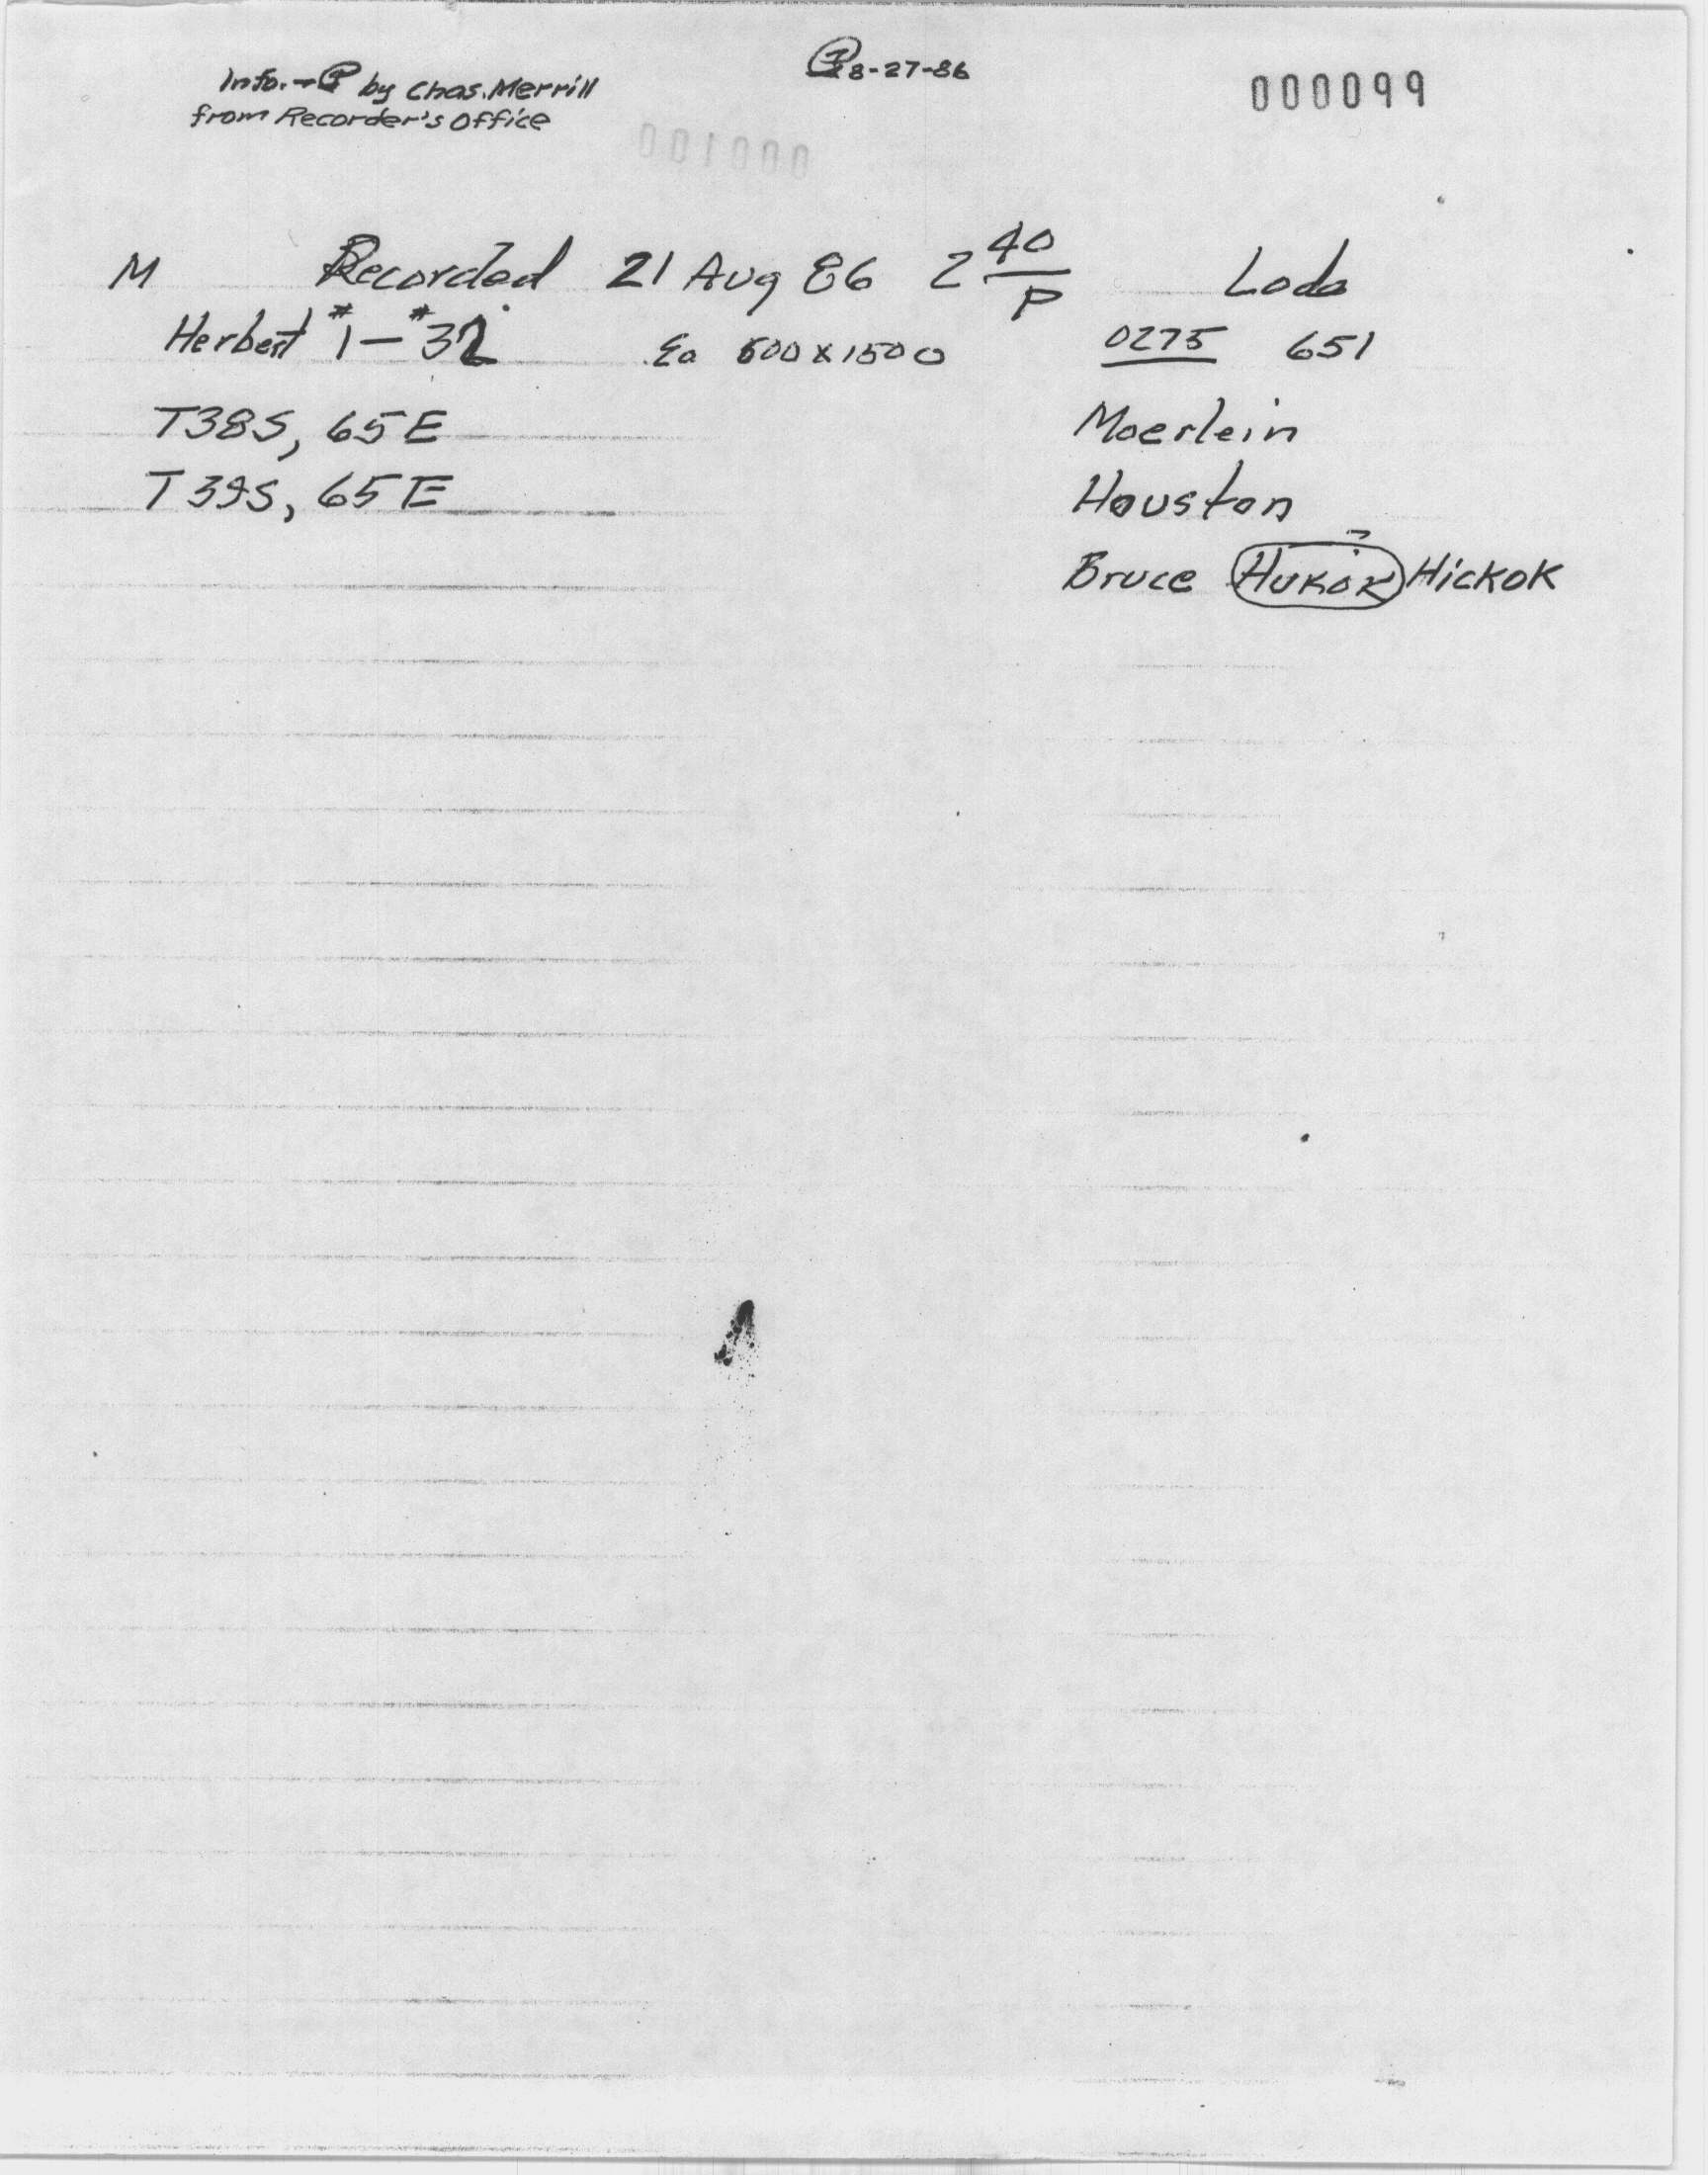 8-27-86
000099
Info. → by Chas. Merrill
from Recorder's Office
000100
M Recorded 21 Aug 86 2 40/P Lode
Herbert #1 - #32 Ea 600 x 1500 0275 651
T38S, 65E Moerlein
T39S, 65E Houston
Bruce Hukok ? Hickok